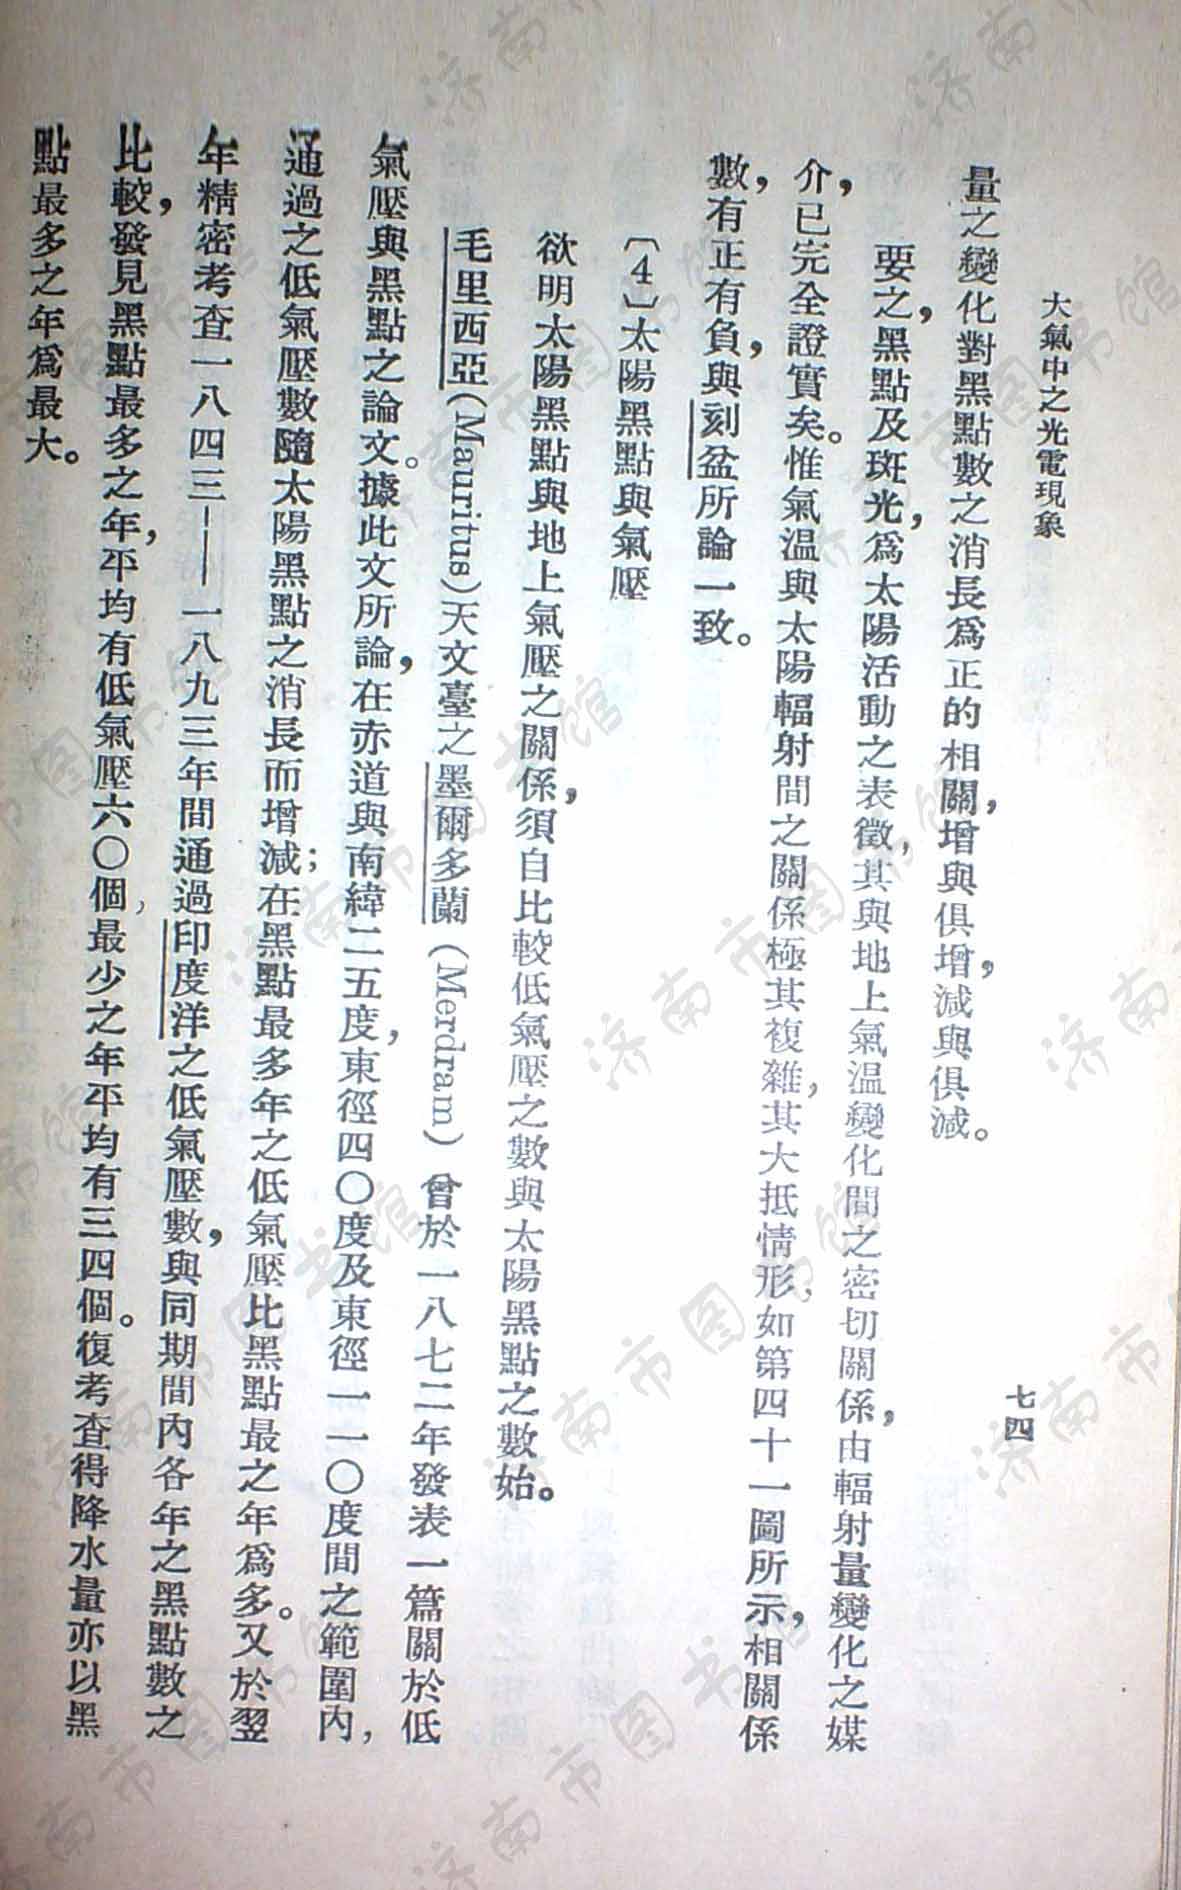 大氣中之光電現象
七四
量之變化對黑點數之消長爲正的相關,增與俱增,減與俱減。
要之,黑點及斑光,爲太陽活動之表徵,其與地上氣温變化間之密切關係,由輻射量變化之媒
介,已完全證實矣。惟氣温與太陽輻射間之關係極其複雜,其大抵情形,如第四十一圖所示,相關係
數,有正有負,與刻盆所論一致。
〔4〕太陽黑點與氣壓
欲明太陽黑點與地上氣壓之關係,須自比較低氣壓之數與太陽黑點之數始。
毛里西亞(Mauritus)天文臺之墨爾多蘭(Merdram)曾於一八七二年發表一篇關於低
氣壓與黑點之論文。據此文所論,在赤道與南緯二五度,東徑四〇度及東徑一一〇度間之範圍內,
通過之低氣壓數隨太陽黑點之消長而增減;在黑點最多年之低氣壓比黑點最之年爲多。又於翌
年精密考查一八四三——一八九三年間通過印度洋之低氣壓數,與同期間內各年之黑點數之
比較,發見黑點最多之年,平均有低氣壓六〇個,最少之年平均有三四個。復考查得降水量亦以黑
點最多之年爲最大。
济南市图书馆